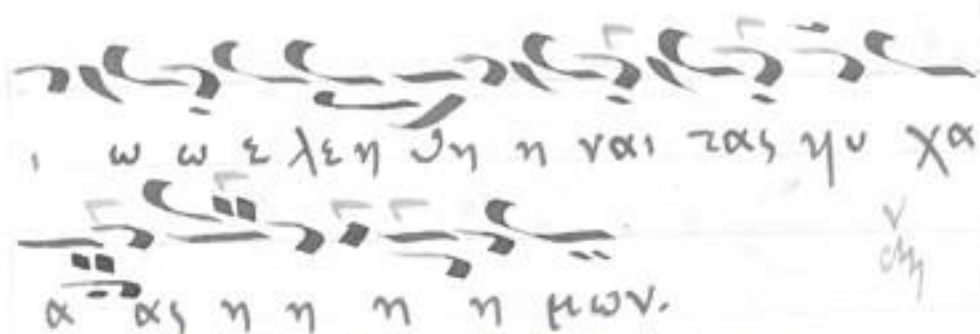 ι ω ω ε λεη θη η ναι τας ψυ χα
α ας η η η η μων.